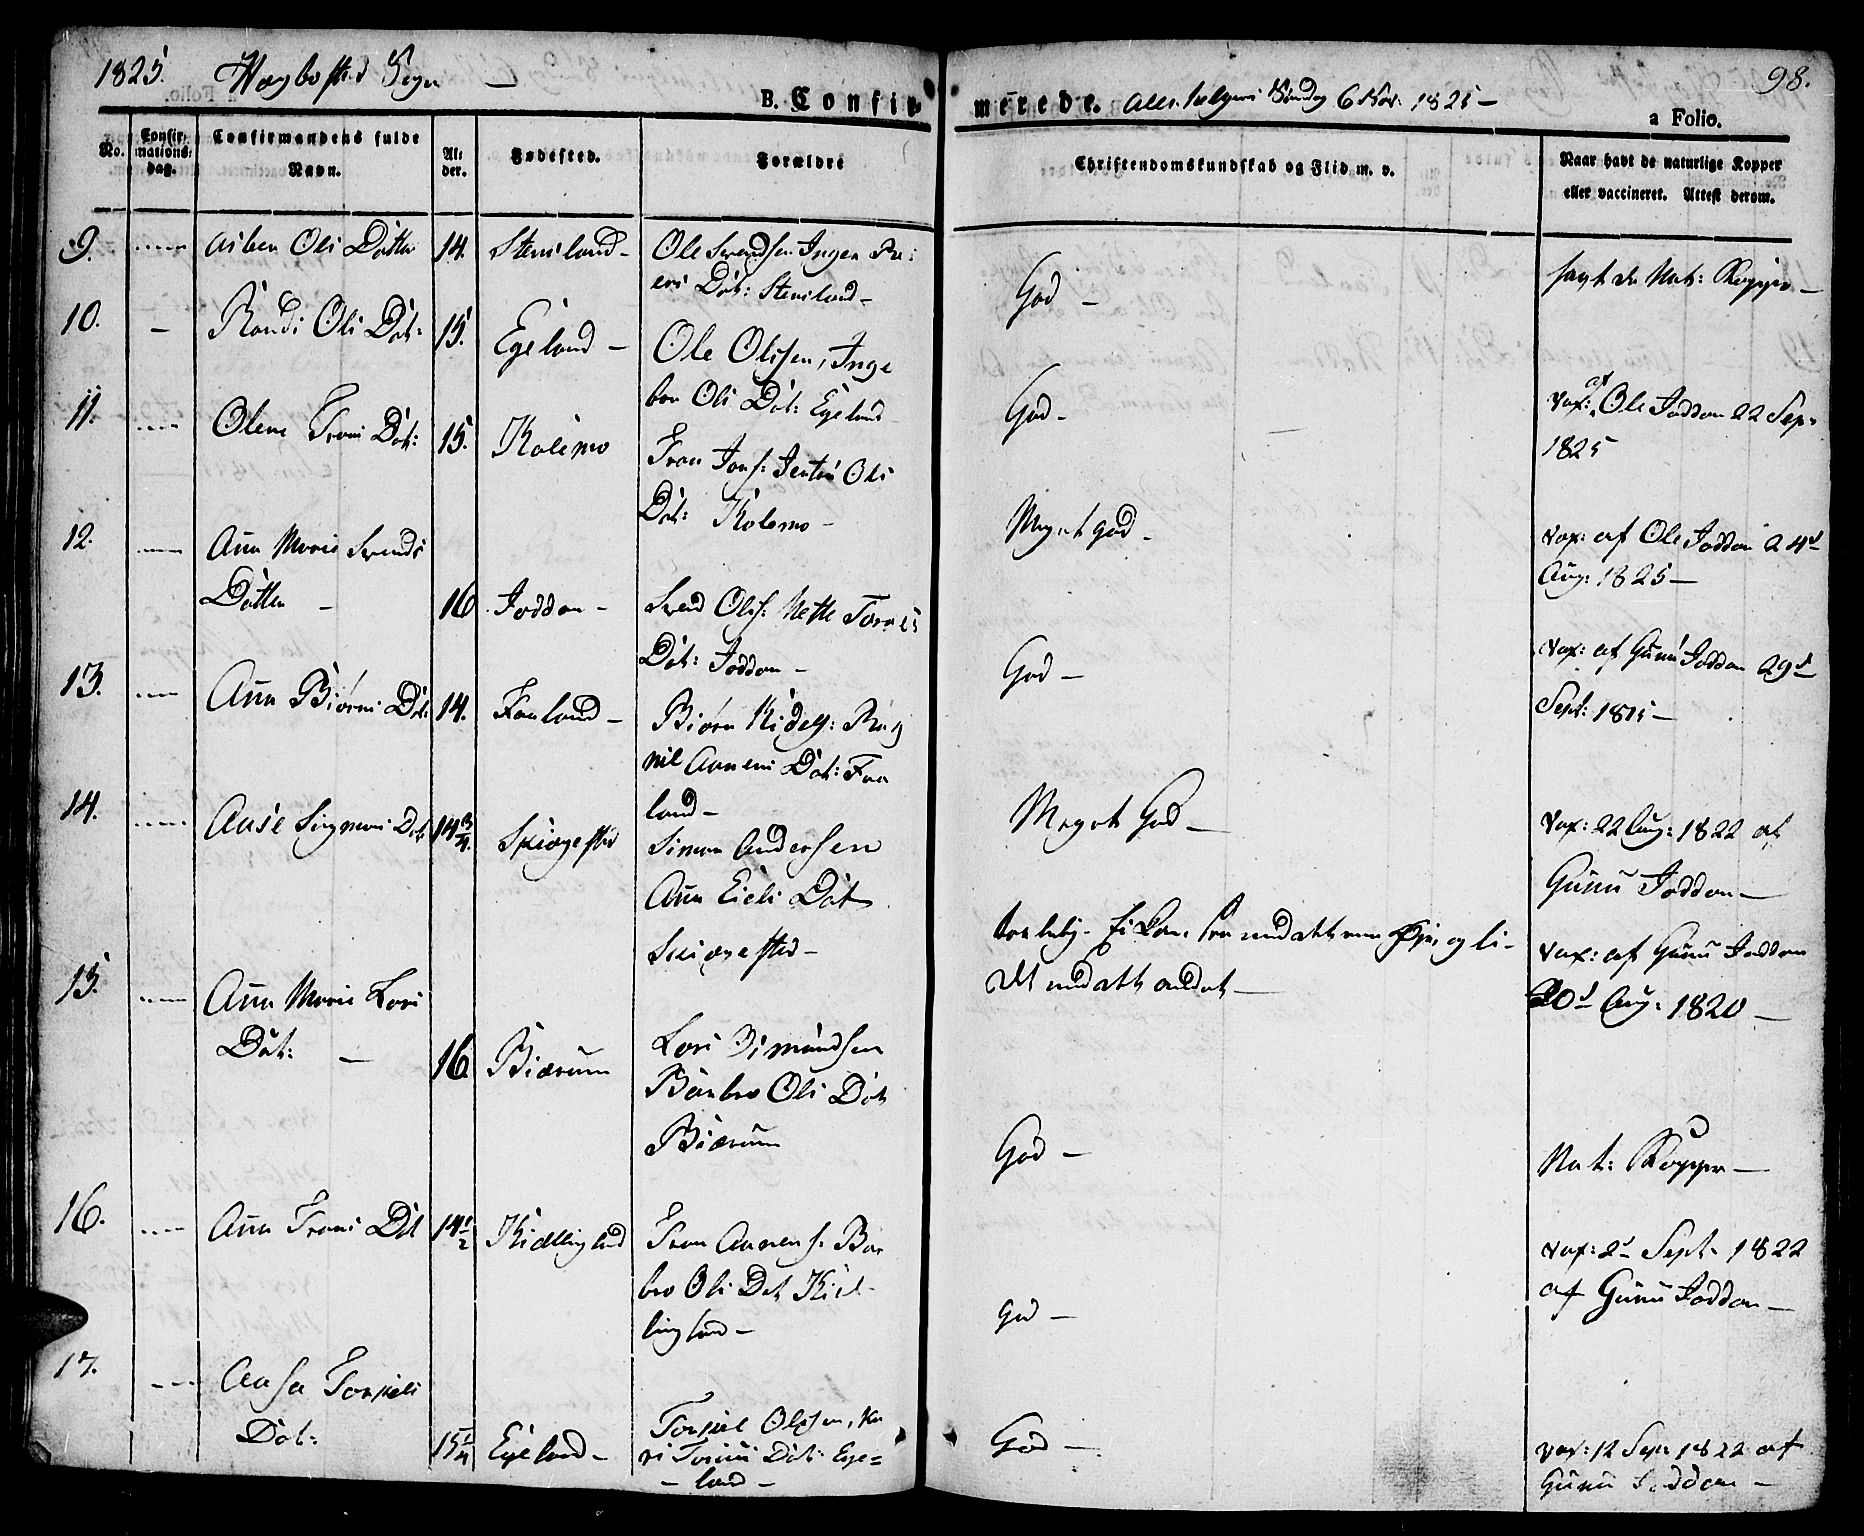 1825. Hægbosted Sogn —
98.
B. Confirmerede. Alle helgens Søndag 6 Nov: 1825 —
a Folio.
No. Confirmations-dag. Confirmandens fulde Navn. Alder. Fødested. Forældre Christendomskundskab og Flid m. v. Naar havt de naturlige Kopper eller vaccineret. Attest derom.
9. Asber Ols Datter 14. Stensland — Ole Svendsen Inger
Dat: Stensland —
God —
havt de Nat: Kopper —
10. — Randi Ols Dat: 15. Egeland — Ole Olsen, Inge
bor Ols Dat: Egeland
God —
vax: af Ole Joddan 22 Sep.
1825
11. Olene Trons Dat: 15. Kolemo Tron Jons: Jentè Ols
Dat: Kolemo —
Meget god —
vax: af Ole Joddan 24d
Aug: 1825 —
12. Ann Marie Svends
Datter — 16 Joddan — Svend Ols: Mette Torres
Dat: Joddan —
God —
vax: af Gunu Joddan 29d
Sept: 1815 —
13. Ann Biørns Dat: 14. Faaland — Biørn Kidels: Rag
nil Aanens Dat: Faa
land —
Meget God —
vax: 22 Aug: 1822 af
Gunu Joddan —
14. Aase Sigmons Dat 14 3/4. Skiægested Simon Andersen
Ann Eiels Dat
Skiægested —
vax: af Gunu Joddan
20d Aug: 1820 —
15. Ann Marie Lars
Dat: — 16 Biærum Lars Simundsen
Barbro Ols Dat
Biærum
God —
Nat: Kopper —
16. Ann Trons Dat 14 1/2 Kiellingland Tron Aanens: Bar
bro Ols Dat Kiel-
lingland —
God —
vax: 2d Sept. 1822
af Gunu Joddan —
17. Aasa Torkels
Dat: 15 1/4 Egeland — Torkel Olsen, Ka
ri Dat: Ege=
— land —
God —
vax: 12 Sep: 1822 af
Gunu Joddan —